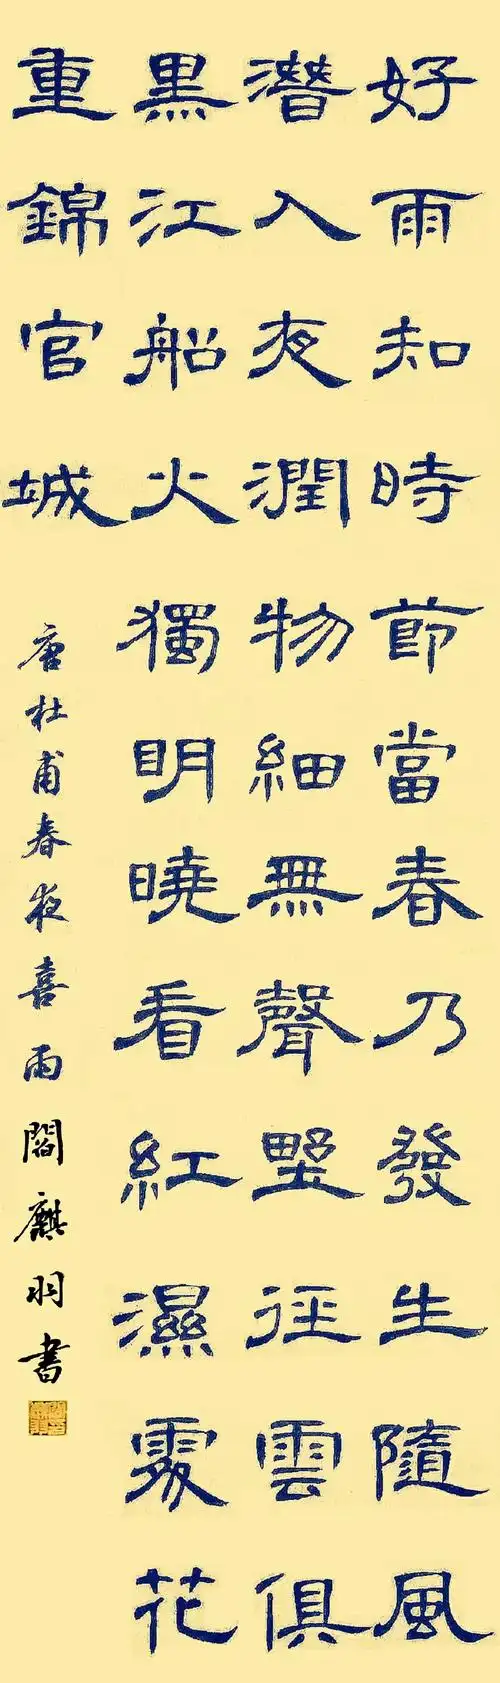 好雨知時節當春乃發生隨風
潛入夜潤物細無聲野徑雲俱
黑江船火獨明曉看紅濕處花
重錦官城
唐杜甫春夜喜雨閻麒羽書